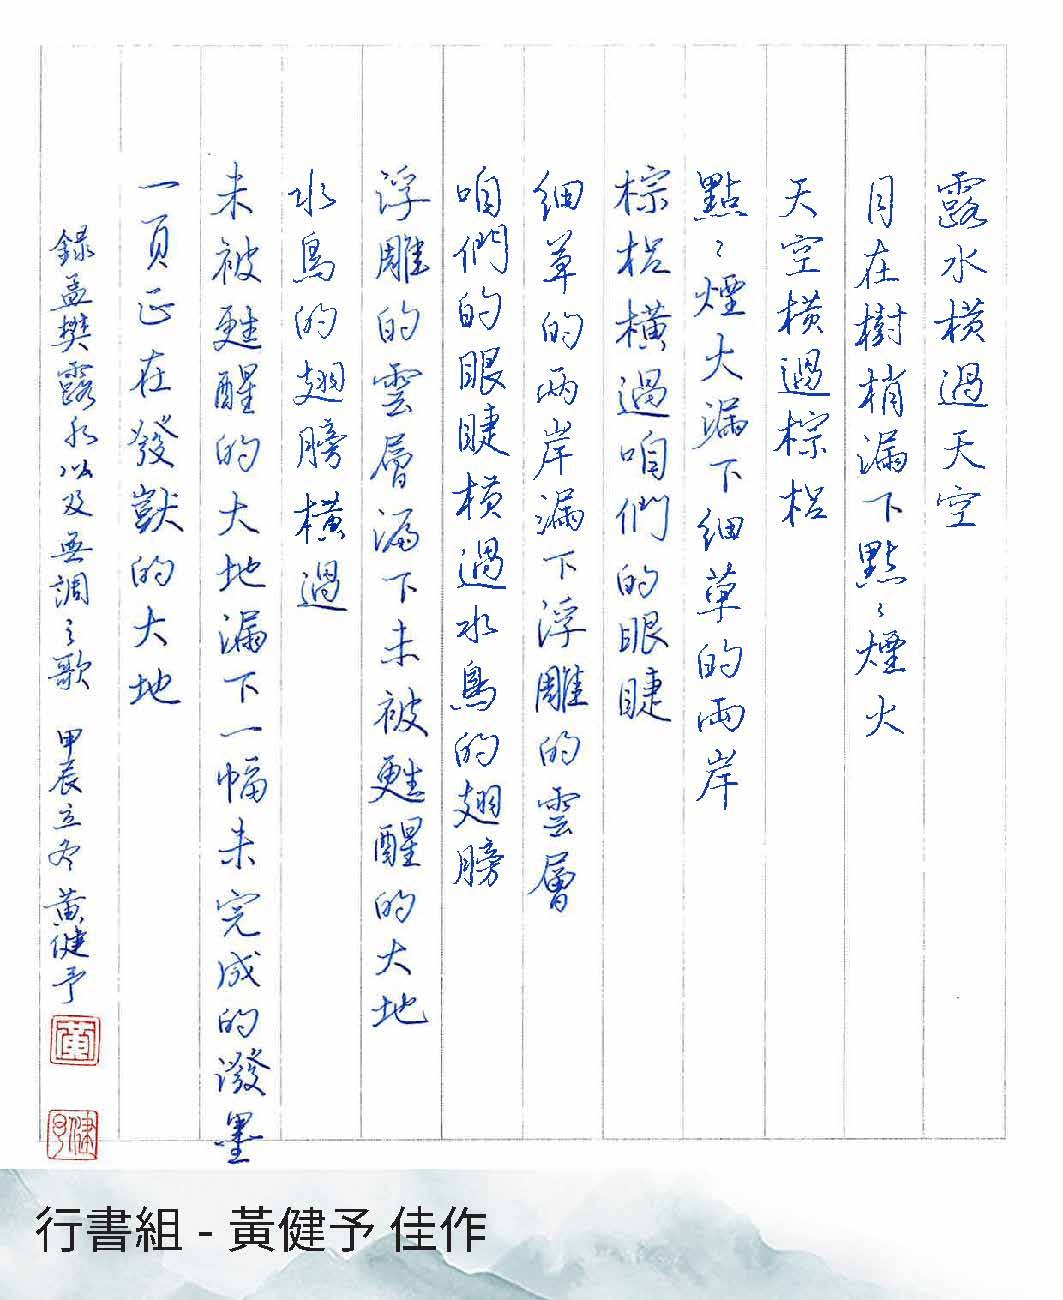 露水橫過天空
月在樹梢漏下點〻煙火
天空橫過棕梠
點〻煙火漏下細草的兩岸
棕梠橫過咱們的眼睫
細草的兩岸漏下浮雕的雲層
咱們的眼睫橫過水鳥的翅膀
浮雕的雲層漏下未被甦醒的大地
水鳥的翅膀橫過
未被甦醒的大地漏下一幅未完成的潑墨
一頁正在發獃的大地
錄孟樊露水以及無調之歌 甲辰立冬黃健予
黃
健予
行書組 - 黃健予 佳作